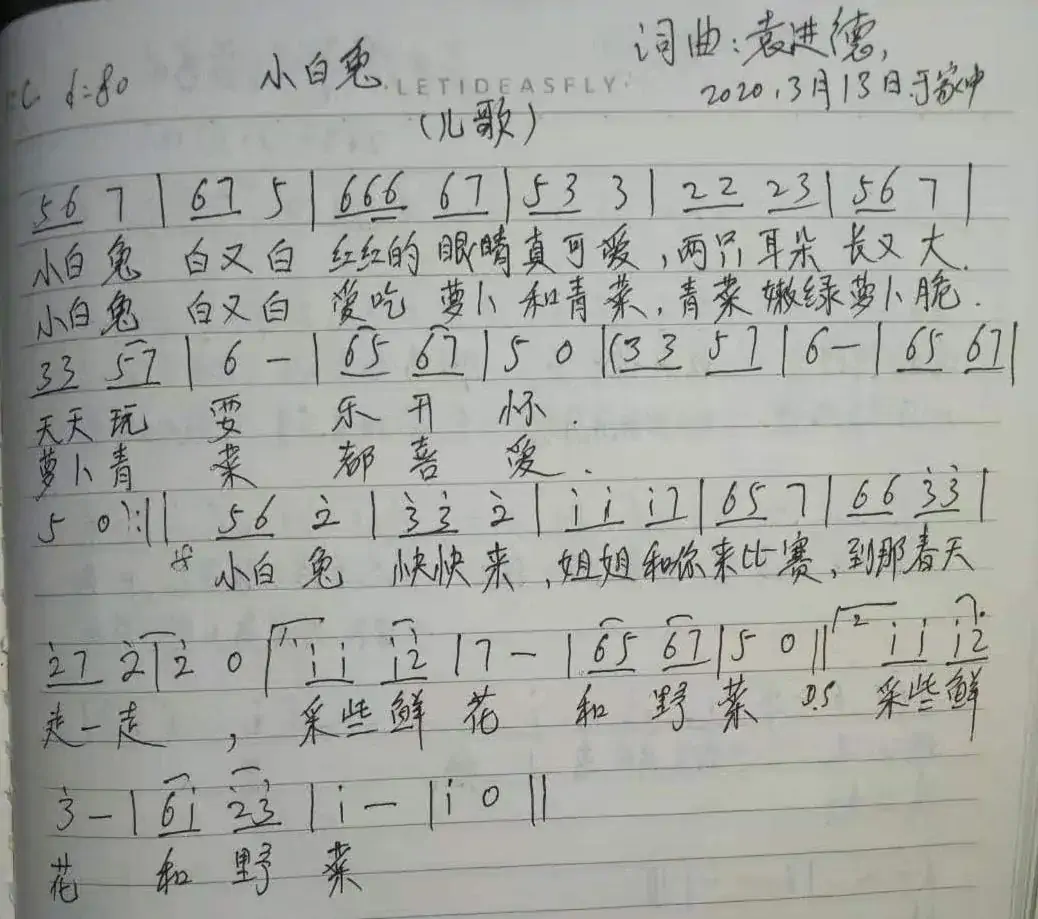 小白兔
词曲:袁进德,
LETIDEASFLY
C ♩=80
2020.3月13日于家中
(儿歌)
56 7 | 67 5 | 666 67 | 53 3 | 22 23 | 56 7 |
小白兔 白又白 红红的眼睛真可爱,两只耳朵 长又大.
小白兔 白又白 爱吃 萝卜和青菜,青菜嫩绿萝卜脆.
33 57 | 6 — | 65 67 | 5 0 |(33 57 | 6 — | 65 67 |
天天玩 耍 乐开 怀.
萝卜青 菜 都喜 爱.
5 0):|| 56 2̇ | 3̇3̇ 2̇ | i i i7 | 65 7 | 66 3̇3̇ |
小白兔 快快来,姐姐和你来比赛,到那春天
2̇7 2̇ | 2̇ 0 | 1. i i i2̇ | 7 — | 65 67 | 5 0 || 2 i i i2̇
走一走, 采些鲜 花 和野 菜 D.S 采些鲜
3̇ — | 6i 2̇3̇ | i — | i 0 ||
花 和 野 菜